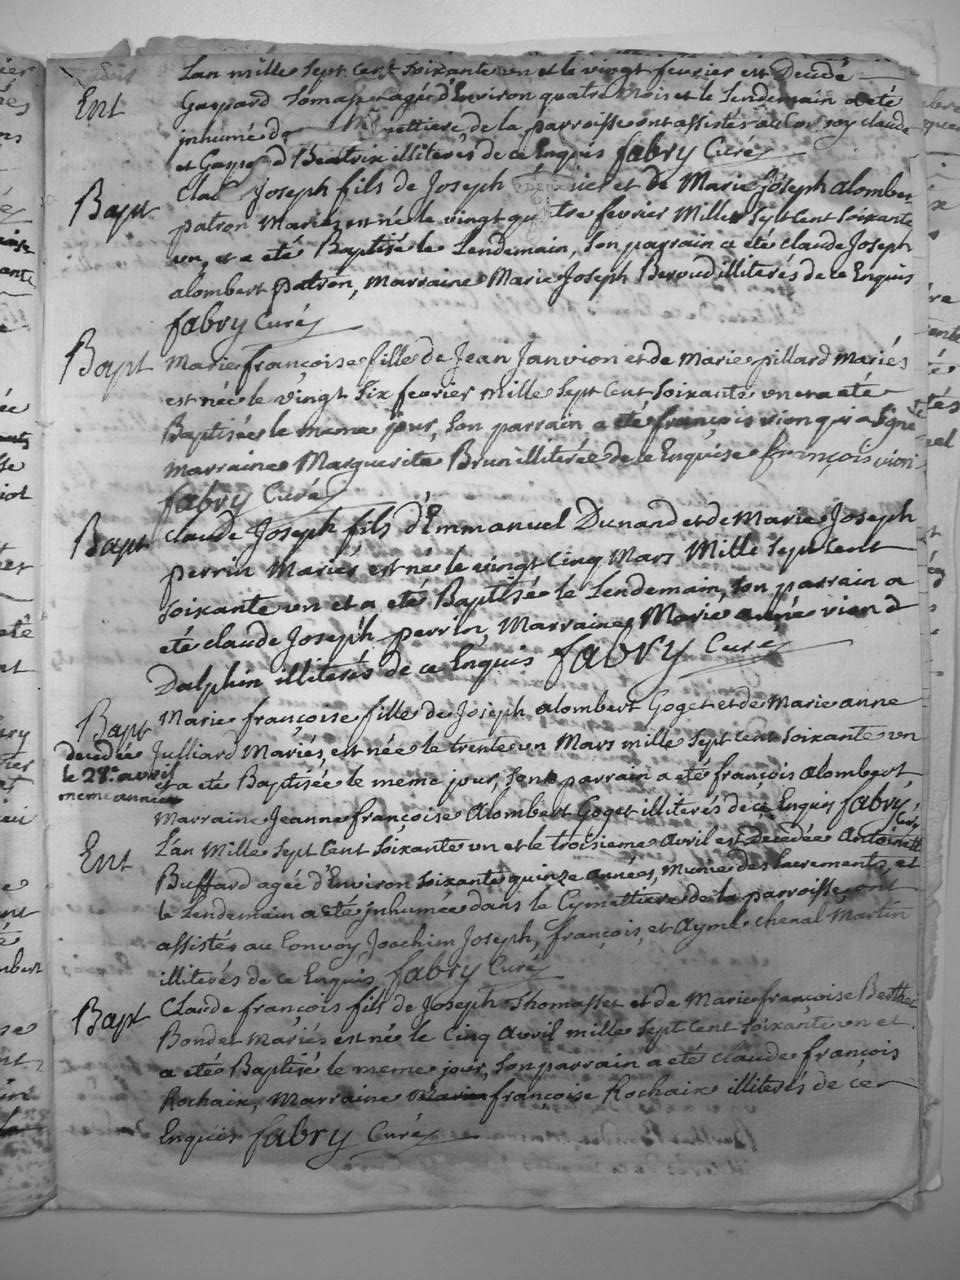 Lan mille Sept Cent Soixante un et le vingt fevrier est Decedé
Ent Gaspard Tomasse agée d'Environ quatre mois et le Lendemain a eté
jnhumé da mettiere de la parroisse ont assistés au Convoy claude
et Gaspard Beatrix illiterés de ce Enquis fabry Curé
Bapt Claude Joseph fils de Joseph et de Marie Joseph alombert
patron Mariez est né le vingt quatre fevrier Mille Sept Cent Soixante
un, et a été Baptisé le Lendemain, Son parrain a été claude Joseph
alombert patron, marraine Marie Joseph Beroud illiterés de ce Enquis
fabry Curé
Bapt Marie françoise fille de Jean Janvion et de Marie pillard mariés
est née le vingt Six fevrier mille Sept Cent Soixante un et a eté
Baptisée le meme jour, Son parrain a eté françois vion qui a Signé
marraine Marguerite Brun illiterée de ce Enquise françois vion
fabry Curé
Bapt Claude Joseph fils d'Emmanuel Dunand et de Marie Joseph
perrin Mariés est né le vingt Cinq Mars Mille Sept Cent
Soixante un et a eté Baptisée le Lendemain, Son parrain a
eté claude Joseph perrin, Marraine Marie anne viend
Dalphin illiterés de ce Enquis fabry Curé
Bapt Marie françoise fille de Joseph alombert Goget et de Marie anne
decedée Julliard Mariés, est née le trente un Mars mille Sept Cent Soixante un
le 28e avril et a eté Baptisée le meme jour, Son parrain a eté françois alombert
meme année Marraine Jeanne françoise Alombert Goget illiterés de ce Enquis fabry Curé
Ent Lan Mille Sept Cent Soixante un et le troisieme Avril est Decedée Antoinette
Buffard agée d'Environ Soixante quinze années, Munie des Sacrements, et
le Lendemain a eté jnhumée dans le Cymettiere de la parroisse ont
assistés au Convoy Joachim Joseph, françois, et Aymé chenal Martin
illiterés de ce Enquis fabry Curé
Bapt Claude françois fils de Joseph Thomasset et de Marie françoise Berthet
Bondet Mariés est né le Cinq Avril mille Sept Cent Soixante un et
a etée Baptisé le meme jour, Son parrain a eté Claude françois
Rochaix, Marraine françoise Rochaix illiterés de ce
Enquis fabry Curé